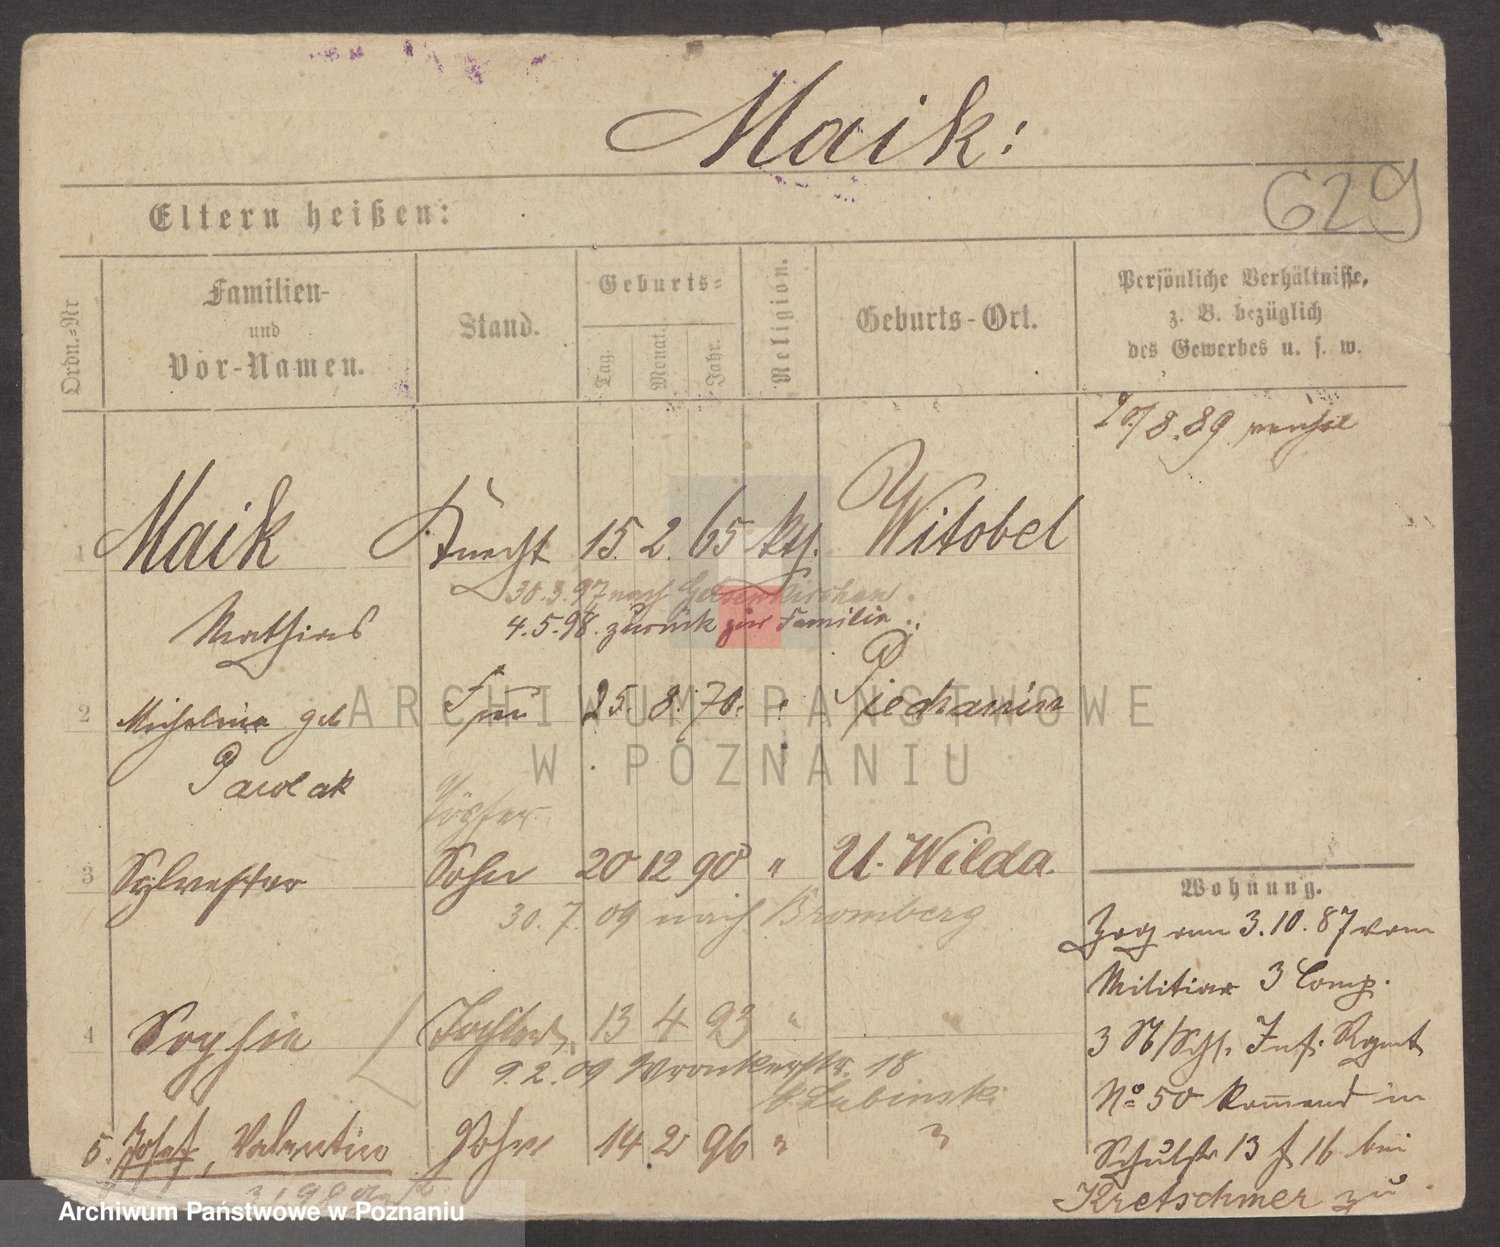 Maik:
629
Eltern heißen:
Ordn.-Nr
Familien-
und
Vor-Namen.
Stand.
Geburts-
Tag.
Monat.
Jahr.
Religion.
Geburts-Ort.
Persönliche Verhältnisse,
z. B. bezüglich
des Gewerbes u. s. w.
8.89
1 Maik Knecht 15. 2. 65 kth. Witobel
30.3.97 nach Gelsenkirchen.
Mathias
4.5.98. zurück zur Familie.
2 Michalina geb Frau 25. 8. 70. " Piechanin
Pawlak
Töpfer
3 Sylvester Sohn 20 12 90 " U. Wilda.
30.7.09 nach Bromberg
4 Sophie Tochter 13 4 93 " "
9.2.09 Wronkerstr. 18
b/Lubinski
5. Josef, Valentin Sohn 14 2 96 " "
Wohnung.
Zog am 3.10.87 vom
Militiar 3 Comp.
3 Inf. Rgmt
No 50 komend in
Schulstr 13 16 bei
Kretschmer zu
ARCHIWUM PAŃSTWOWE
W POZNANIU
Archiwum Państwowe w Poznaniu